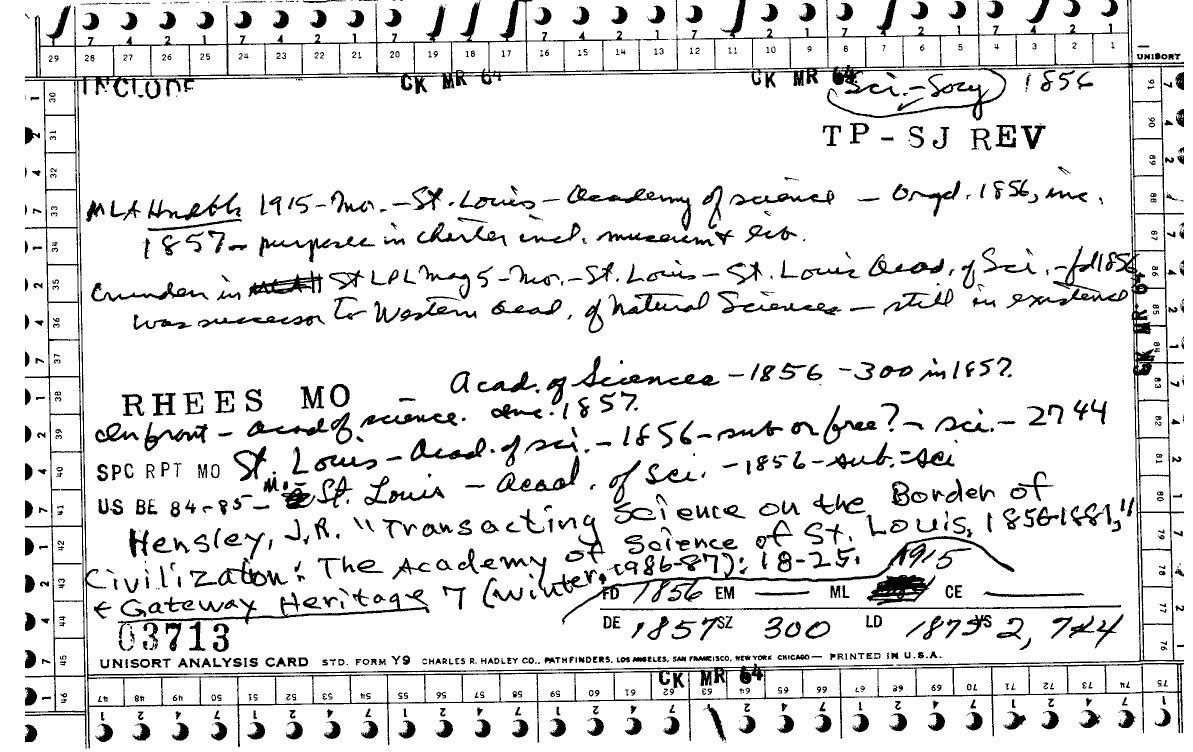 7 4 2 1 7 4 2 1 7 4 2 1 7 4 2 1 7 4 2 1 7 4 2 1
29 28 27 26 25 24 23 22 21 20 19 18 17 16 15 14 13 12 11 10 9 8 7 6 5 4 3 2 1
UNISORT
INCLUDE CK MR 64 CK MR 64 Sci.-Socy 1856
TP-SJ REV
MLA Hndbk 1915-Mo.-St. Louis-Academy of science - Orgd. 1856, inc.
1857- purposes in charter incl. museum & lib.
Crunden in StLPL Mag 5-Mo.-St. Louis-St. Louis Acad. of Sci.-fd 1856
was successor to Western Acad. of Natural Sciences - still in existence
Acad. of Sciences -1856 -300 in 1857.
RHEES MO -
In front - Acad of science. Inc. 1857.
SPC RPT MO St. Louis-Acad. of sci.-1856-sub or free?- sci.-2744
US BE 84-85- Mo- St. Louis - Acad. of Sci. -1856-sub.-sci
Hensley, J.R. "Transacting Science on the Border of
Civilization: The Academy of Science of St. Louis, 1856-1881,"
& Gateway Heritage 7 (Winter, 1986-87): 18-25.
1915
FD 1856 EM — ML CE —
03713
DE 1857 SZ 300 LD 1875 VS 2,744
UNISORT ANALYSIS CARD STD. FORM Y9 CHARLES R. HADLEY CO., PATHFINDERS, LOS ANGELES, SAN FRANCISCO, NEW YORK CHICAGO— PRINTED IN U.S.A.
CK MR 64
CK MR 64
47 48 49 50 51 52 53 54 55 56 57 58 59 60 61 62 63 64 65 66 67 68 69 70 71 72 73 74 75